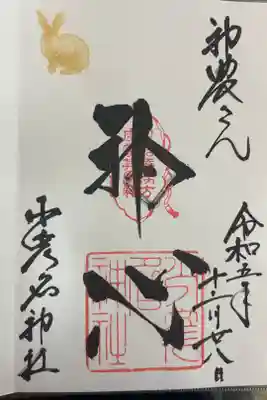 神農さん
令和五年
十二月廿八日
神心
少彦名神社